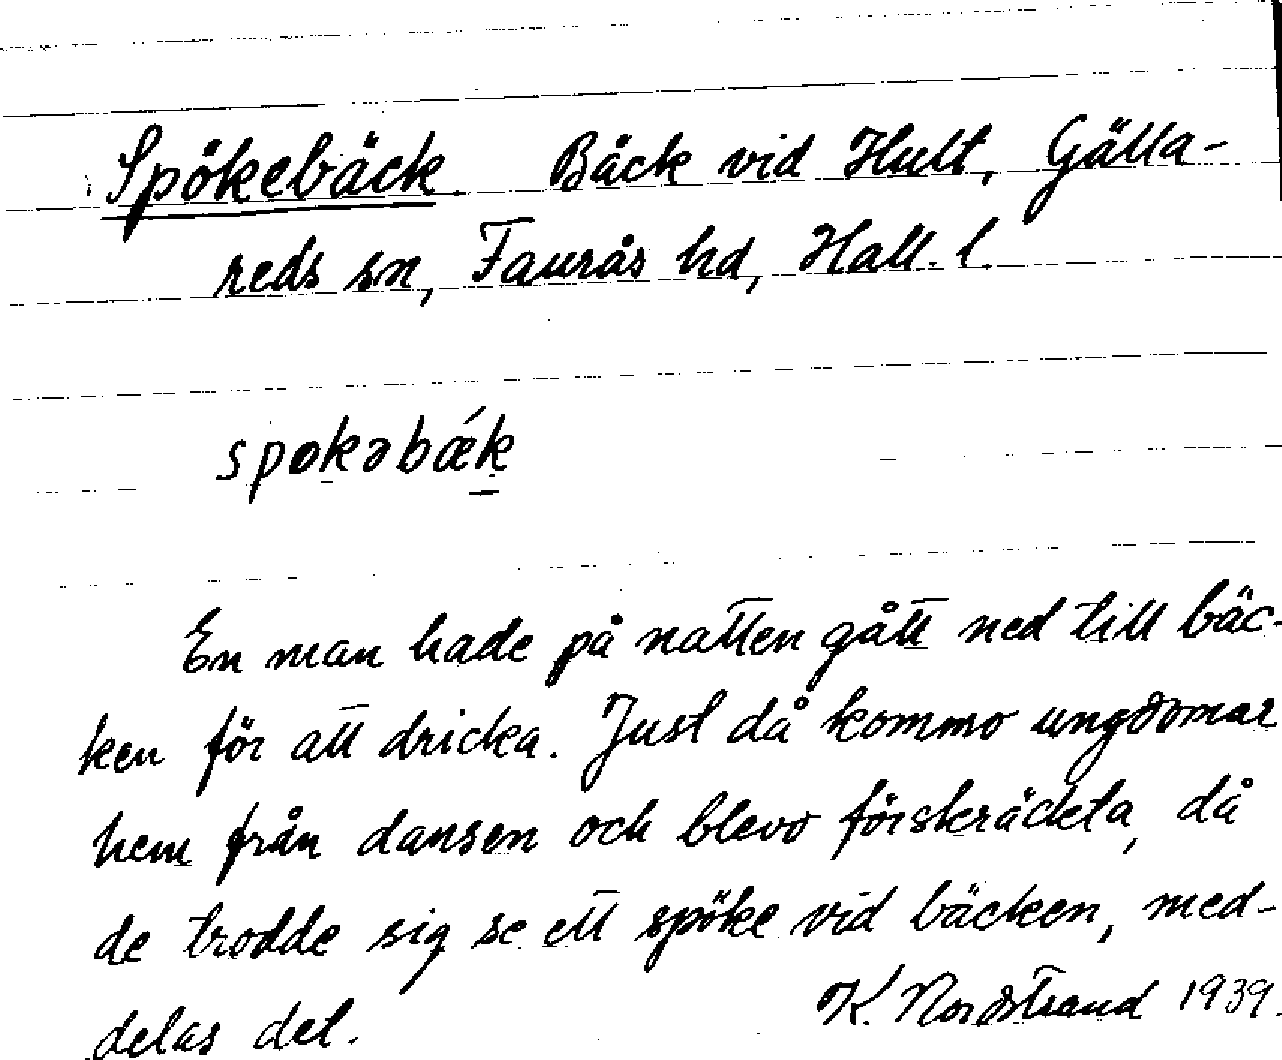 Spökebäck. Bäck vid Hult, Gälla-
reds sn, Faurås hd, Hall. l.
spøkəbǽk
En man hade på natten gått ned till bäc-
ken för att dricka. Just då kommo ungdomar
hem från dansen och blevo förskräckta, då
de trodde sig se ett spöke vid bäcken, med-
delas det.
K. Nordstrand 1939.